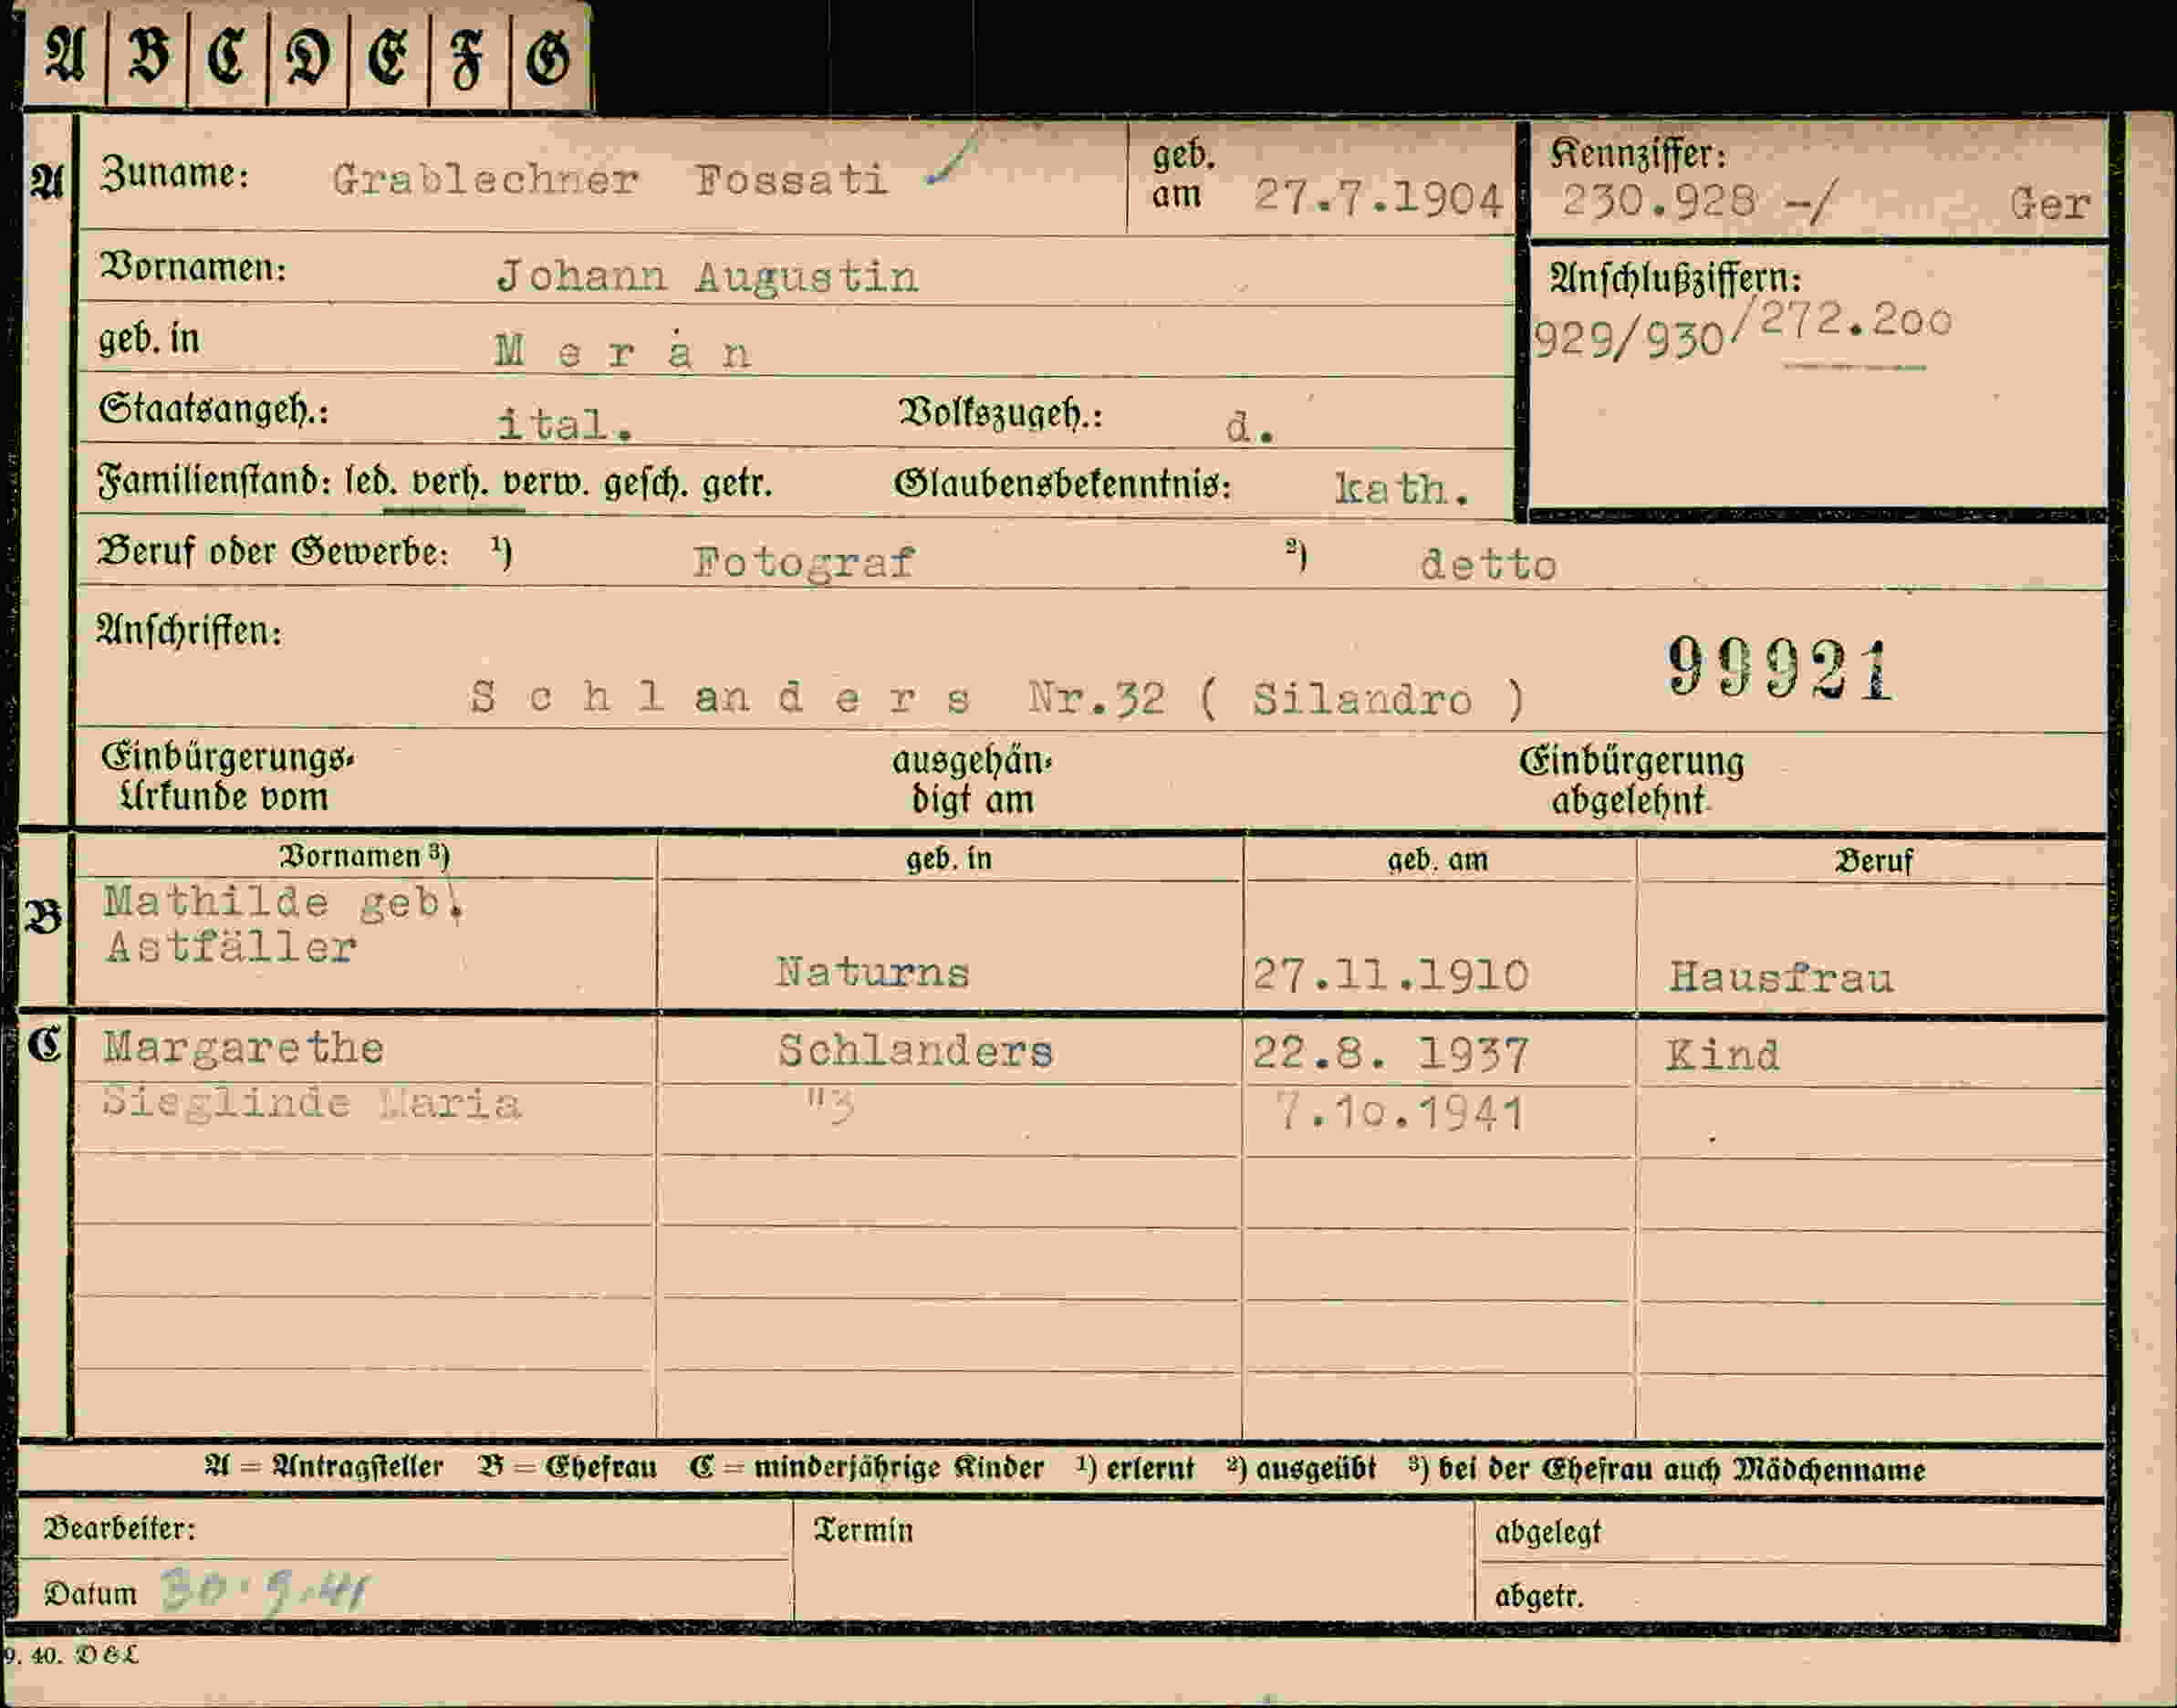 A B C D E F G
A Zuname: Grablechner Fossati geb. am 27.7.1904 Kennziffer: 230.928 -/ Ger
Vornamen: Johann Augustin Anschlußziffern:
929/930/272.200
geb. in Meran
Staatsangeh.: ital. Volkszugeh.: d.
Familienstand: led. verh. verw. gesch. getr. Glaubensbekenntnis: kath.
Beruf oder Gewerbe: ¹) Fotograf ²) detto
Anschriften:
99921
Schlanders Nr.32 ( Silandro )
Einbürgerungs- ausgehän- Einbürgerung
Urkunde vom digt am abgelehnt
Vornamen ³) geb. in geb. am Beruf
B Mathilde geb.
Astfäller
Naturns 27.11.1910 Hausfrau
C Margarethe Schlanders 22.8. 1937 Kind
Sieglinde Maria "3 7.10.1941
A = Antragsteller B = Ehefrau C = minderjährige Kinder ¹) erlernt ²) ausgeübt ³) bei der Ehefrau auch Mädchenname
Bearbeiter: Termin abgelegt
Datum 30.9.41 abgetr.
9. 40. D&L